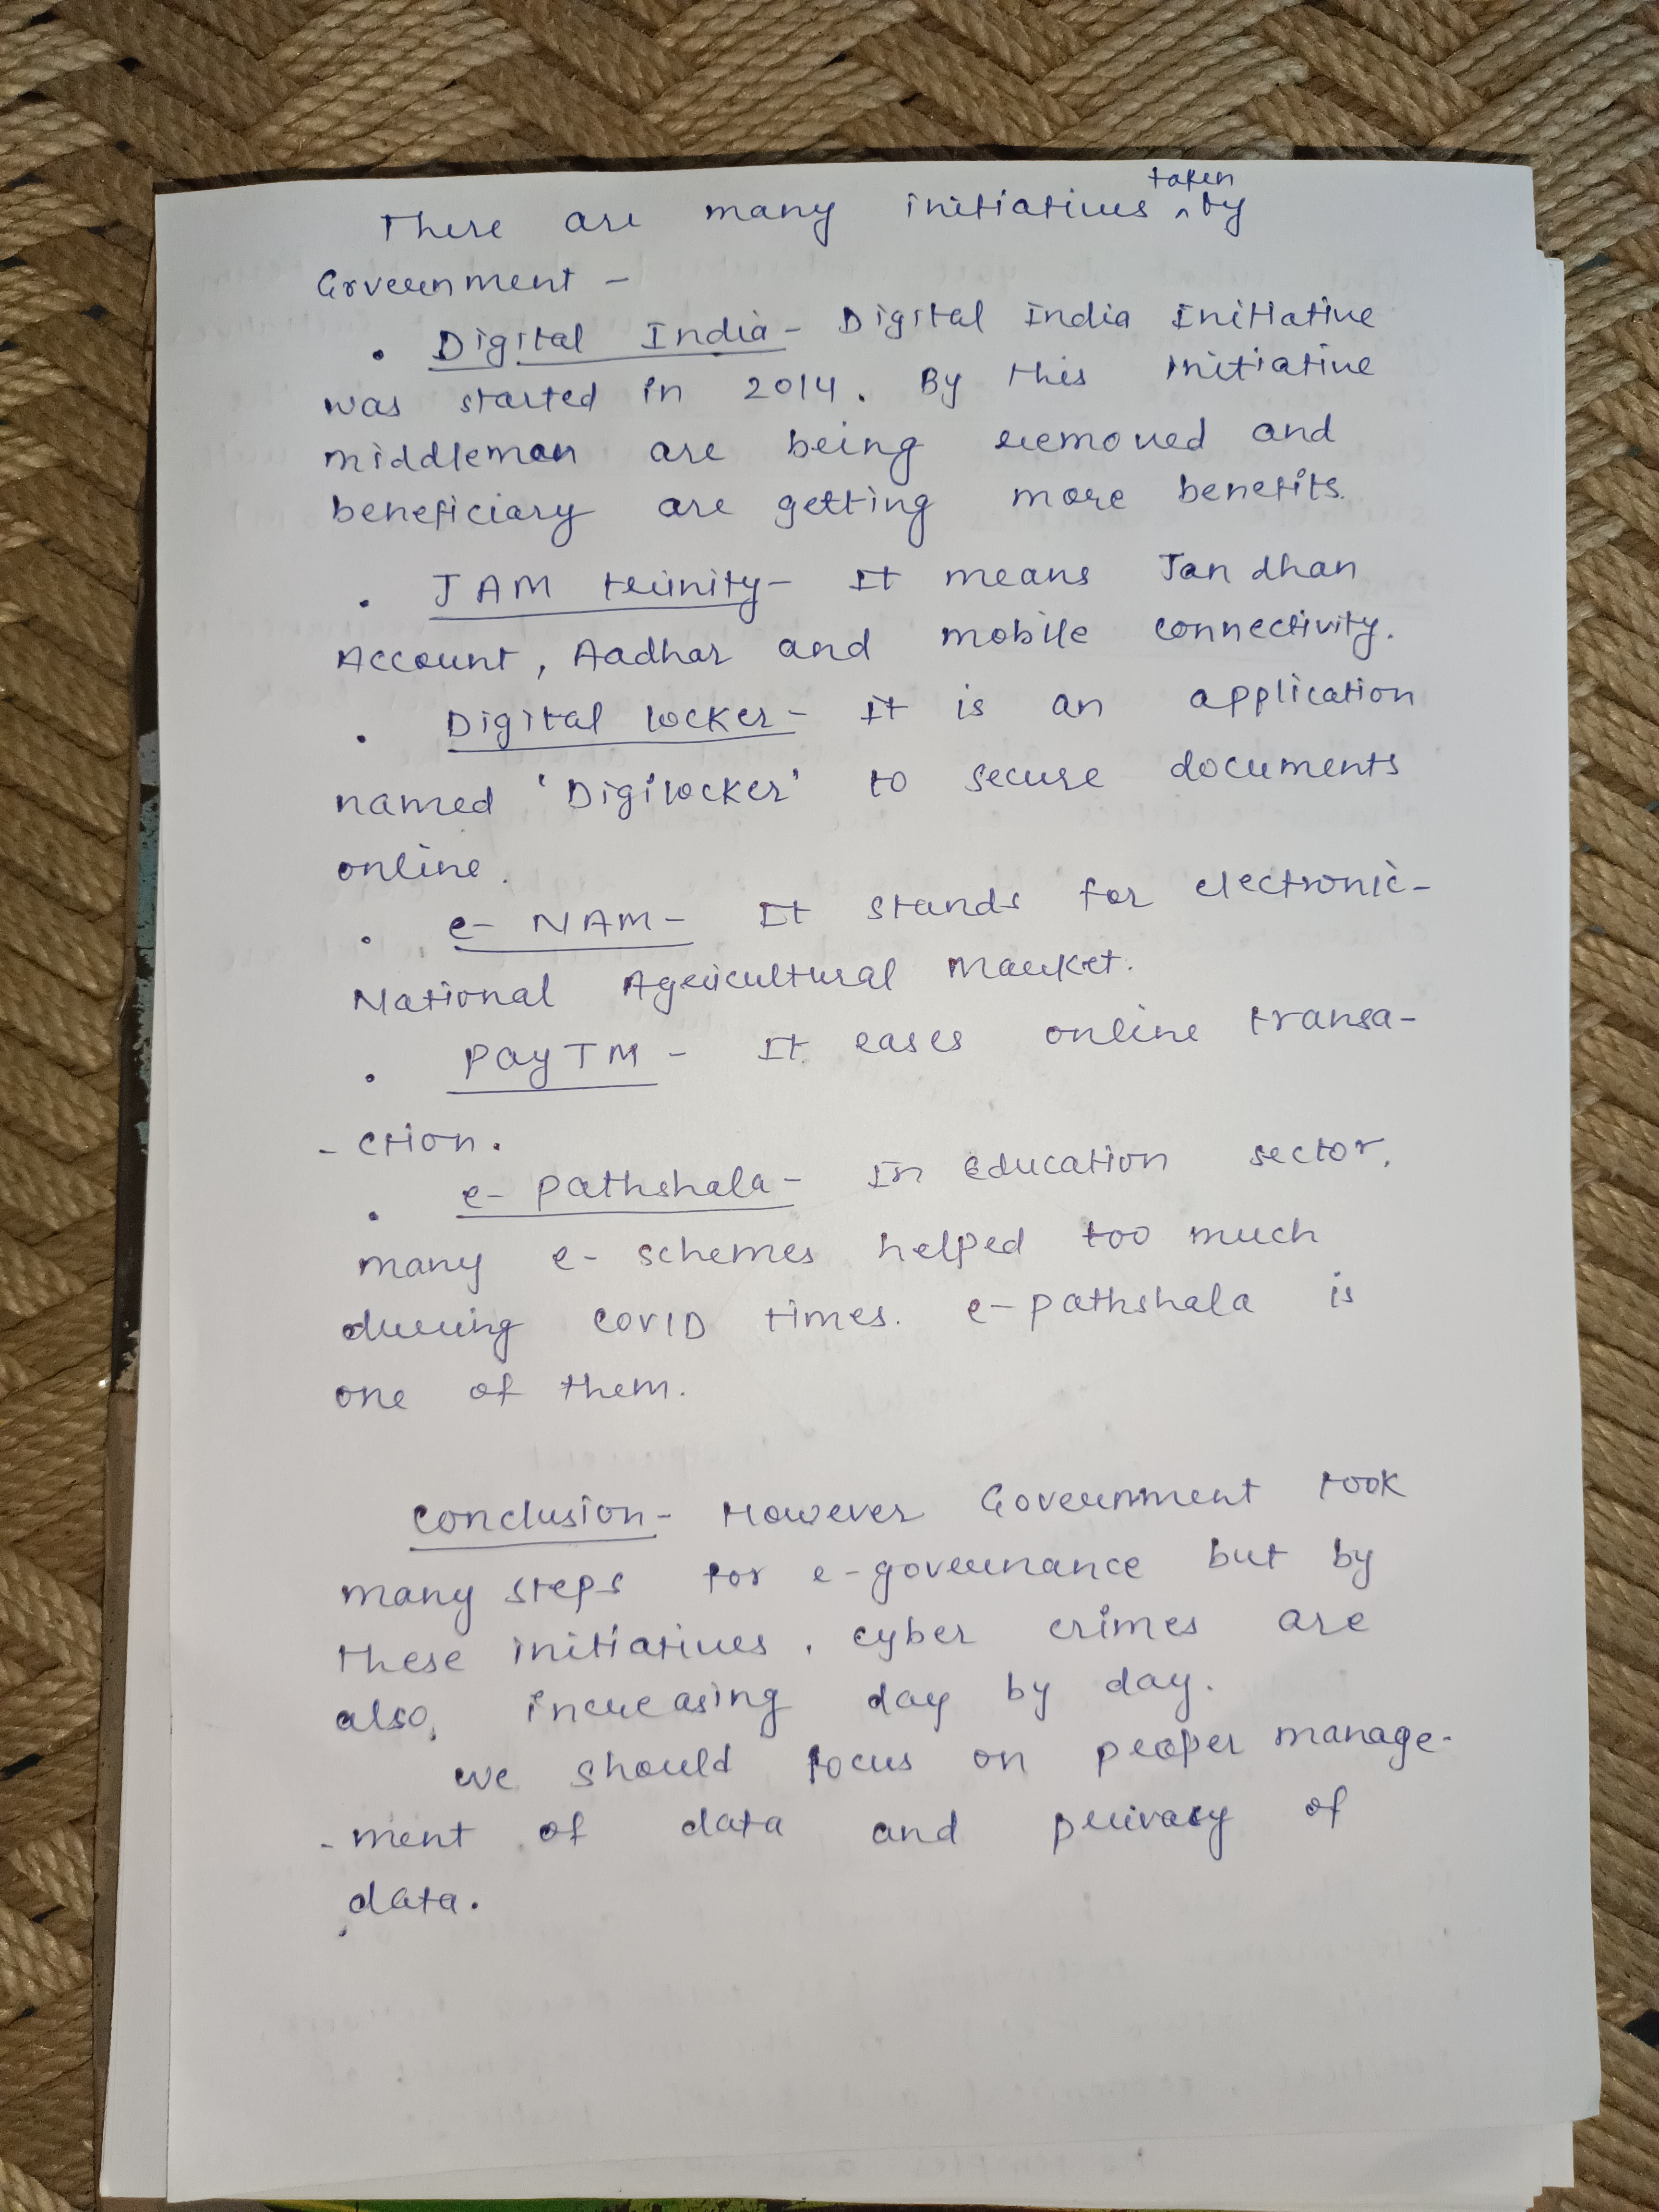 There are many initiatives taken by
Government -
• Digital India - Digital India Initiative
was started in 2014. By this initiative
middleman are being removed and
beneficiary are getting more benefits.
• JAM trinity - It means Jan dhan
Account, Aadhar and mobile connectivity.
• Digital locker - It is an application
named 'Digilocker' to secure documents
online.
• e-NAM - It stands for electronic-
National Agricultural Market.
• PayTM - It eases online transa-
-ction.
• e-pathshala - In education sector,
many e-schemes helped too much
during COVID times. e-pathshala is
one of them.
Conclusion - However Government took
many steps for e-governance but by
these initiatives, cyber crimes are
also, increasing day by day.
we should focus on proper manage-
-ment of data and privacy of
data.